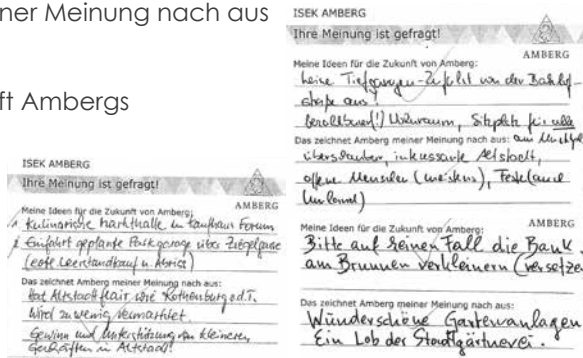 ner Meinung nach aus
ft Ambergs
ISEK AMBERG
Ihre Meinung ist gefragt!
AMBERG
Meine Ideen für die Zukunft von Amberg:
Kulinarische Markthalle in Kaufhaus Forum
Einfahrt geplante Parkgarage über Ziegelgasse
(evtl. Leerstandkauf u. Abriss)
Das zeichnet Amberg meiner Meinung nach aus:
Hat Altstadtflair wie Rothenburg o.d.T.
Wird zu wenig vermarktet.
Gewinn und Unterstützung von kleineren
Geschäften in Altstadt!
ISEK AMBERG
Ihre Meinung ist gefragt!
AMBERG
Meine Ideen für die Zukunft von Amberg:
keine Tiefgaragen-Zufahrt von der Bahnhof-
straße aus!
bezahlbarer(!) Wohnraum, Sitzplätze für alle
Das zeichnet Amberg meiner Meinung nach aus:
interessante Altstadt,
offene Menschen (meistens), Feste (auch
AMBERG
Meine Ideen für die Zukunft von Amberg:
Bitte auf keinen Fall die Bank
am Brunnen verkleinern (versetzen
Das zeichnet Amberg meiner Meinung nach aus:
Wunderschöne Gartenanlagen
Ein Lob der Stadtgärtnerei.